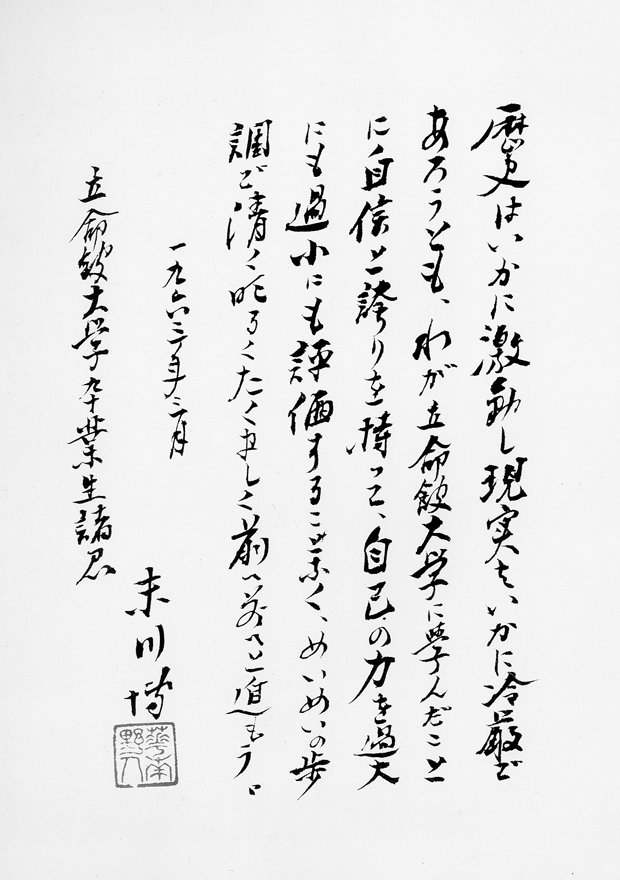 歴史はいかに激動し現実はいかに冷厳で
あろうとも、わが立命館大学に学んだこと
に自信と誇りを持って、自己の力を過大
にも過小にも評価することなく、めいめいの歩
調で清く明るくたくましく前へ前へと進もう。
一九六三年三月
末川博
華南野人
立命館大学卒業生諸君